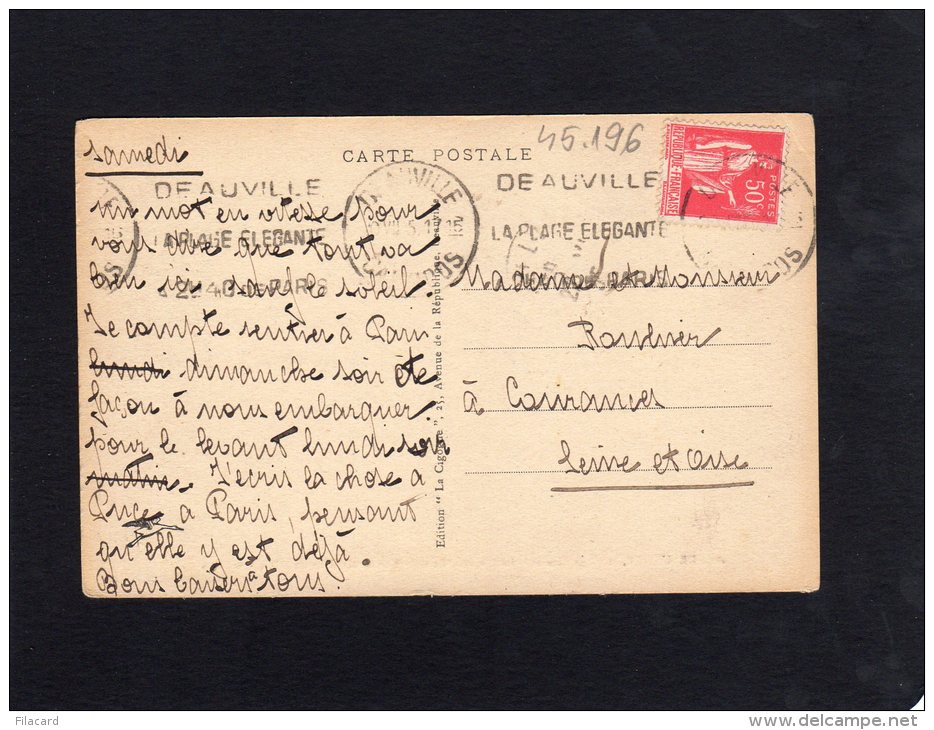 45.196
Samedi
CARTE POSTALE
DEAUVILLE
LA PLAGE ELEGANTE
DEAUVILLE
LA PLAGE ELEGANTE
REPUBLIQUE FRANÇAISE
POSTES
50c
un mot en vitesse pour
vous dire que tout va
bien ici sauf le soleil.
Je compte rentrer à Paris
lundi dimanche soir de
façon à nous embarquer
pour le levant lundi soir
matin. J'écris la chose à
Puce à Paris, pensant
qu'elle y est déjà.
Bons baisers à tous.
Edition "La Cigogne", 25, Avenue de la République,
Madame et Monsieur
à Courances
Seine et Oise
Filacard
www.delcampe.net